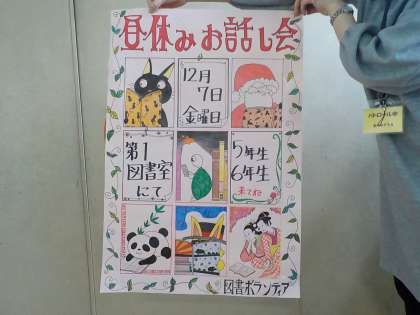 昼休みお話し会
12月
7日
金曜日
第1
図書室
にて
5年生
6年生
来てね
図書ボランティア
パトロール中